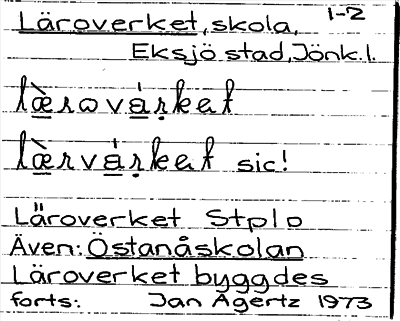 1-2
Läroverket, skola,
Eksjö stad, Jönk.l.
læ̀rovárkat
læ̀rvárkat sic!
Läroverket Stplo
Även: Östanåskolan
Läroverket byggdes
forts. Jan Agertz 1973